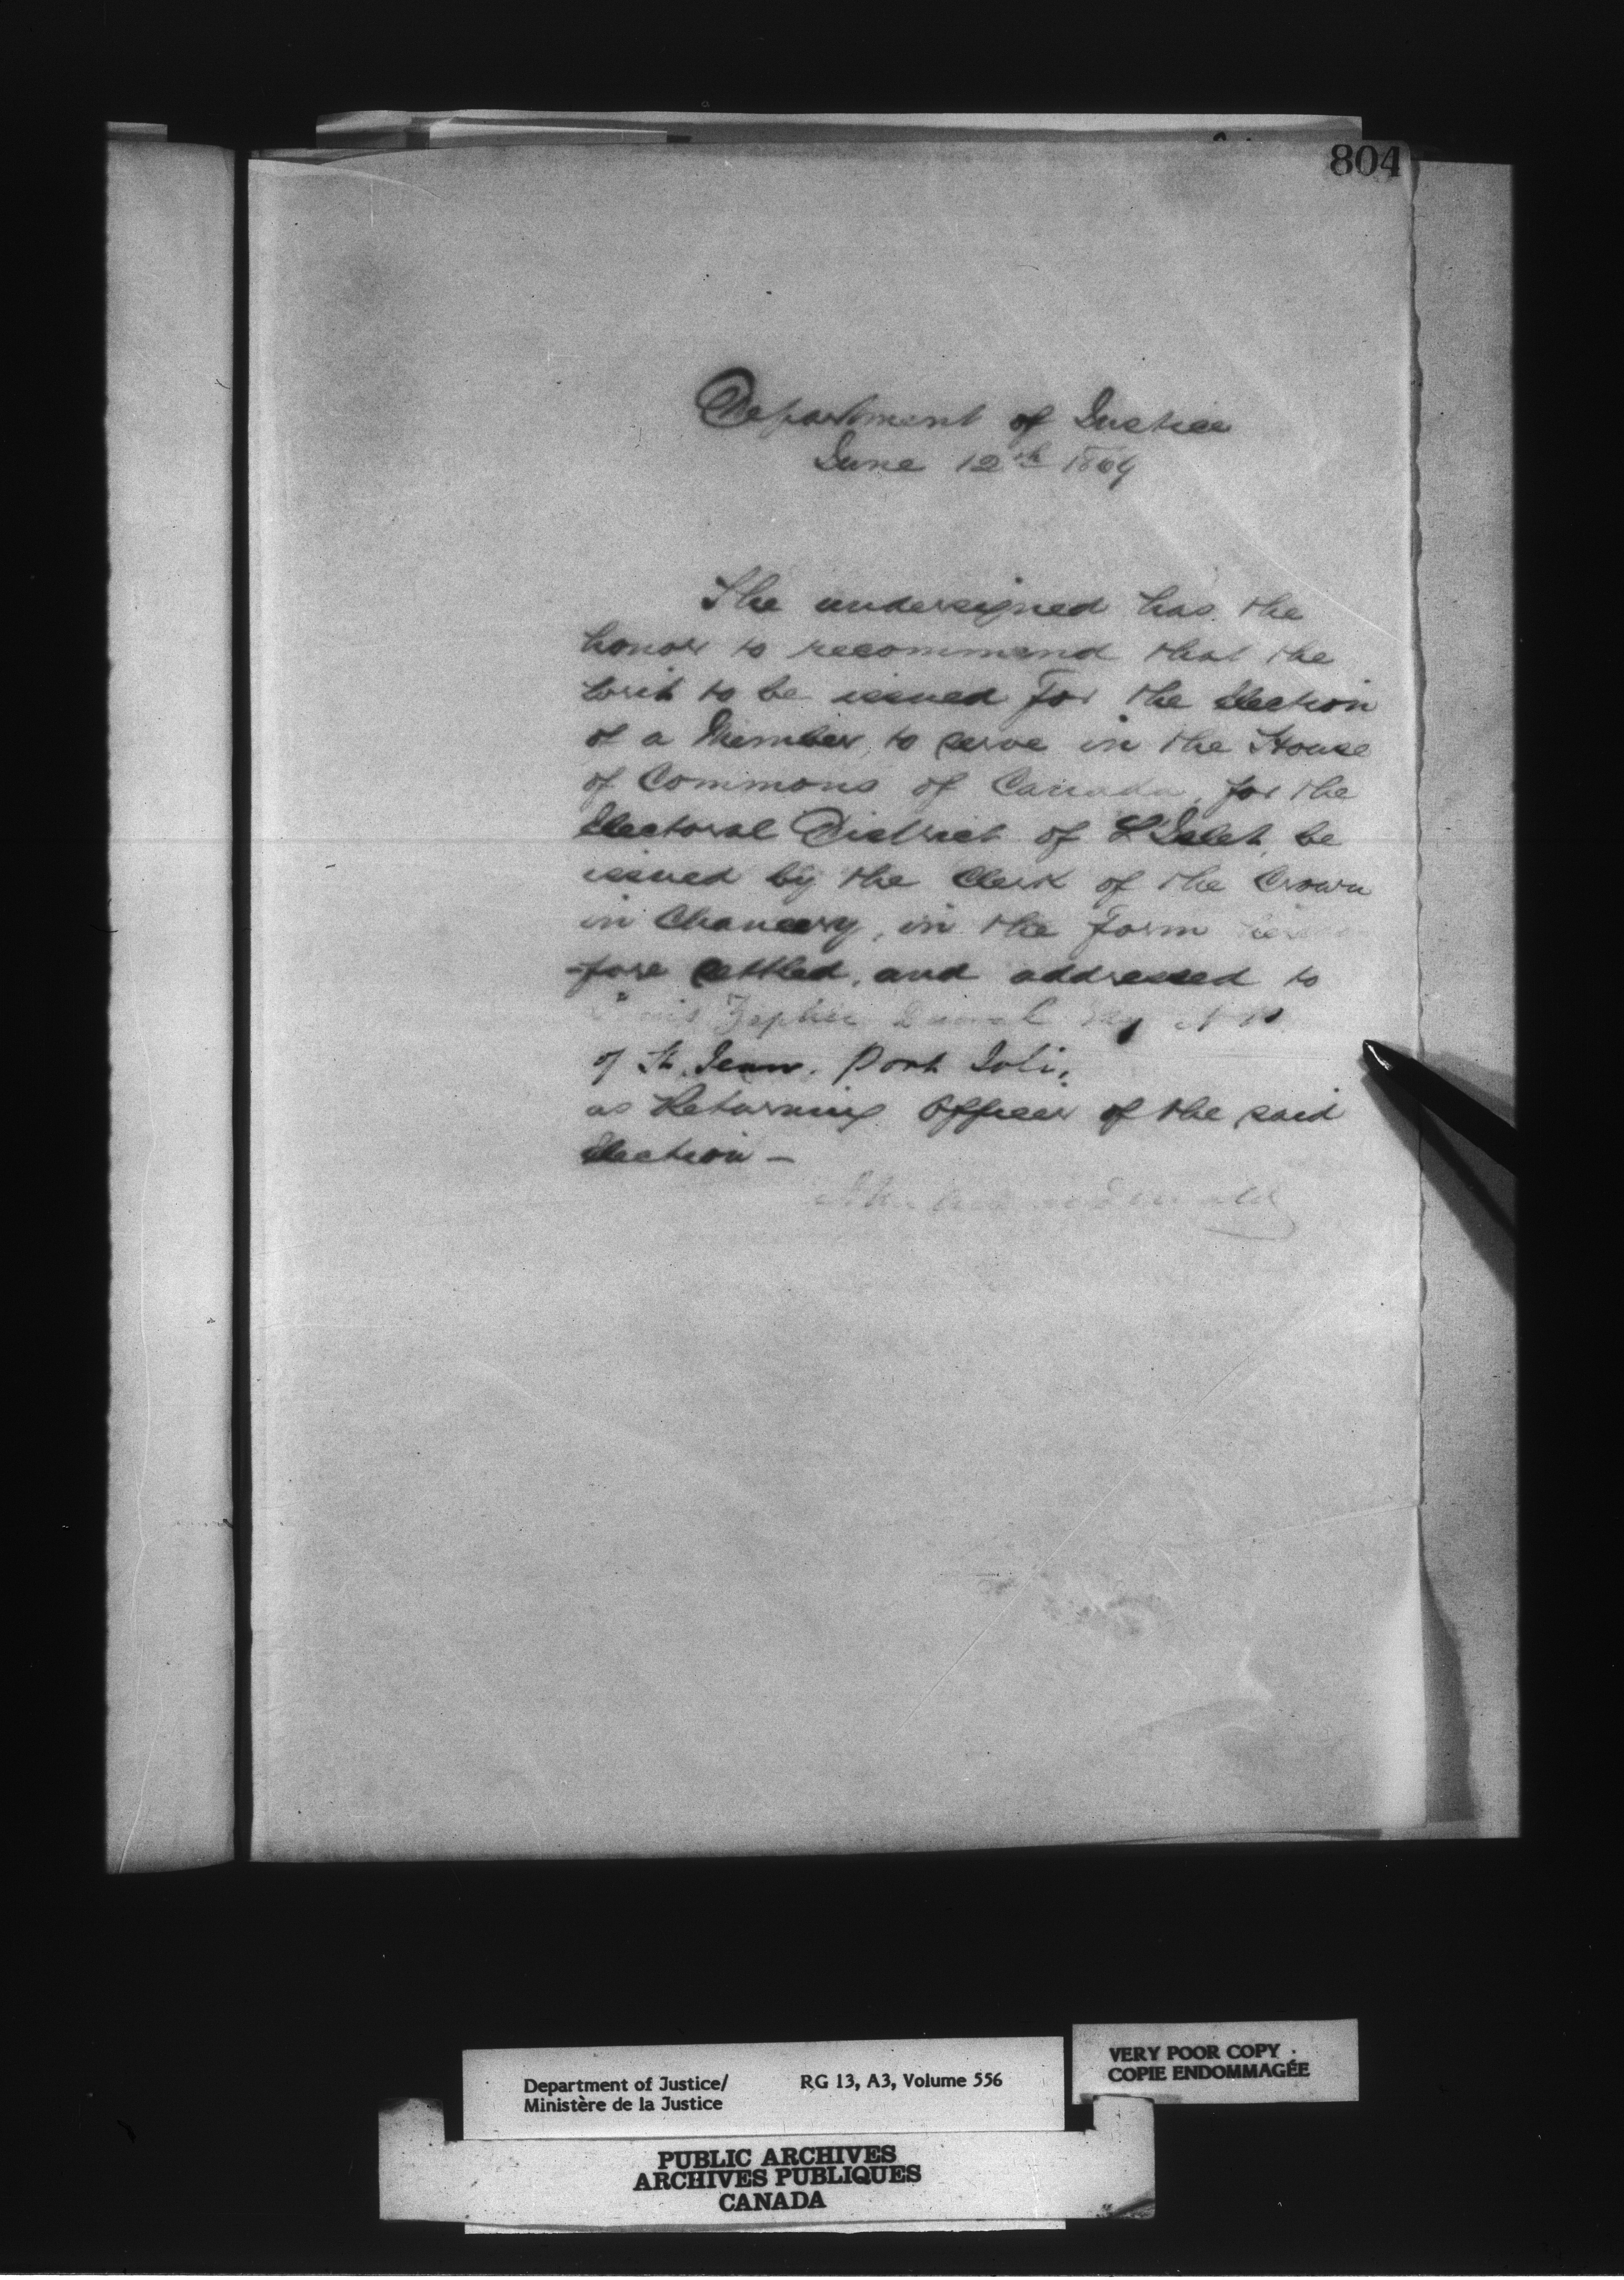 804
Department of Justice
June 12th 1869
The undersigned has the
honor to recommend that the
writ to be issued for the Election
of a Member, to serve in the House
of Commons of Canada, for the
Electoral District of L'Islet, be
issued by the Clerk of the Crown
in Chancery, in the form
-fore settled, and addressed to
Zephir Esq N.P.
of St. Jean. Port Joli.
as Returning Officer of the said
Election —
Department of Justice/ RG 13, A3, Volume 556
Ministère de la Justice
VERY POOR COPY
COPIE ENDOMMAGÉE
PUBLIC ARCHIVES
ARCHIVES PUBLIQUES
CANADA